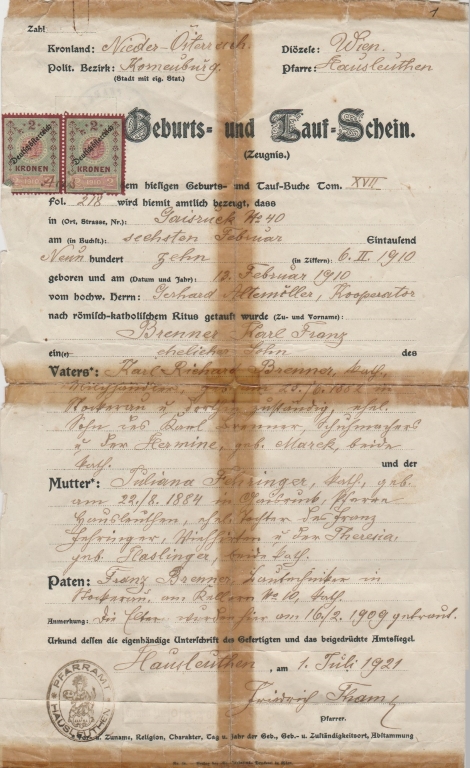 1
Zahl
Kronland: Nieder-Österreich Diözese: Wien.
Polit. Bezirk: Korneuburg. Pfarre: Hausleuthen
(Stadt mit eig. Stat.)
2 2
Deutschösterreich Deutschösterreich
KRONEN KRONEN
Geburts- und Tauf-Schein.
(Zeugnis.)
dem hiesigen Geburts- und Tauf-Buche Tom. XVII
Fol. 218 wird hiemit amtlich bezeugt, dass
in (Ort, Strasse, Nr.): Gaisruck No 40
am (in Buchst.): sechsten Februar Eintausend
Neun hundert zehn (in Ziffern): 6. II. 1910
geboren und am (Datum und Jahr): 13. Februar 1910
vom hochw. Herrn: Gerhard Altemöller, Kooperator
nach römisch-katholischem Ritus getauft wurde (Zu- und Vorname):
Brenner Karl Franz
ein(e) ehelicher Sohn des
Vaters*: Karl Richard Brenner, kath.
geb. am 1882 in
Stockerau u. dorthin zuständig, ehel.
Sohn des Karl Brenner, Schuhmachers
u. der Hermine, geb. Marek, beide
kath. und der
Mutter*: Juliana Fehringer, kath., geb.
am 22./8. 1884 in Pfarre
Hausleuthen, ehel. Tochter des Franz
Fehringer, u. der Theresia,
geb. Haslinger, beide kath.
Paten: Franz Brenner, Bautechniker in
Stockerau, am No 10, kath.
Anmerkung: Die Eltern wurden hier am 16/2. 1909 getraut.
Urkund dessen die eigenhändige Unterschrift des Gefertigten und das beigedrückte Amtssiegel.
Hausleuthen, am 1. Juli 1921
Friedrich
Pfarrer.
PFARRAMT HAUSLEUTHEN
u. Zuname, Religion, Charakter, Tag u. Jahr der Geb., Geb.- u. Zuständigkeitsort, Abstammung